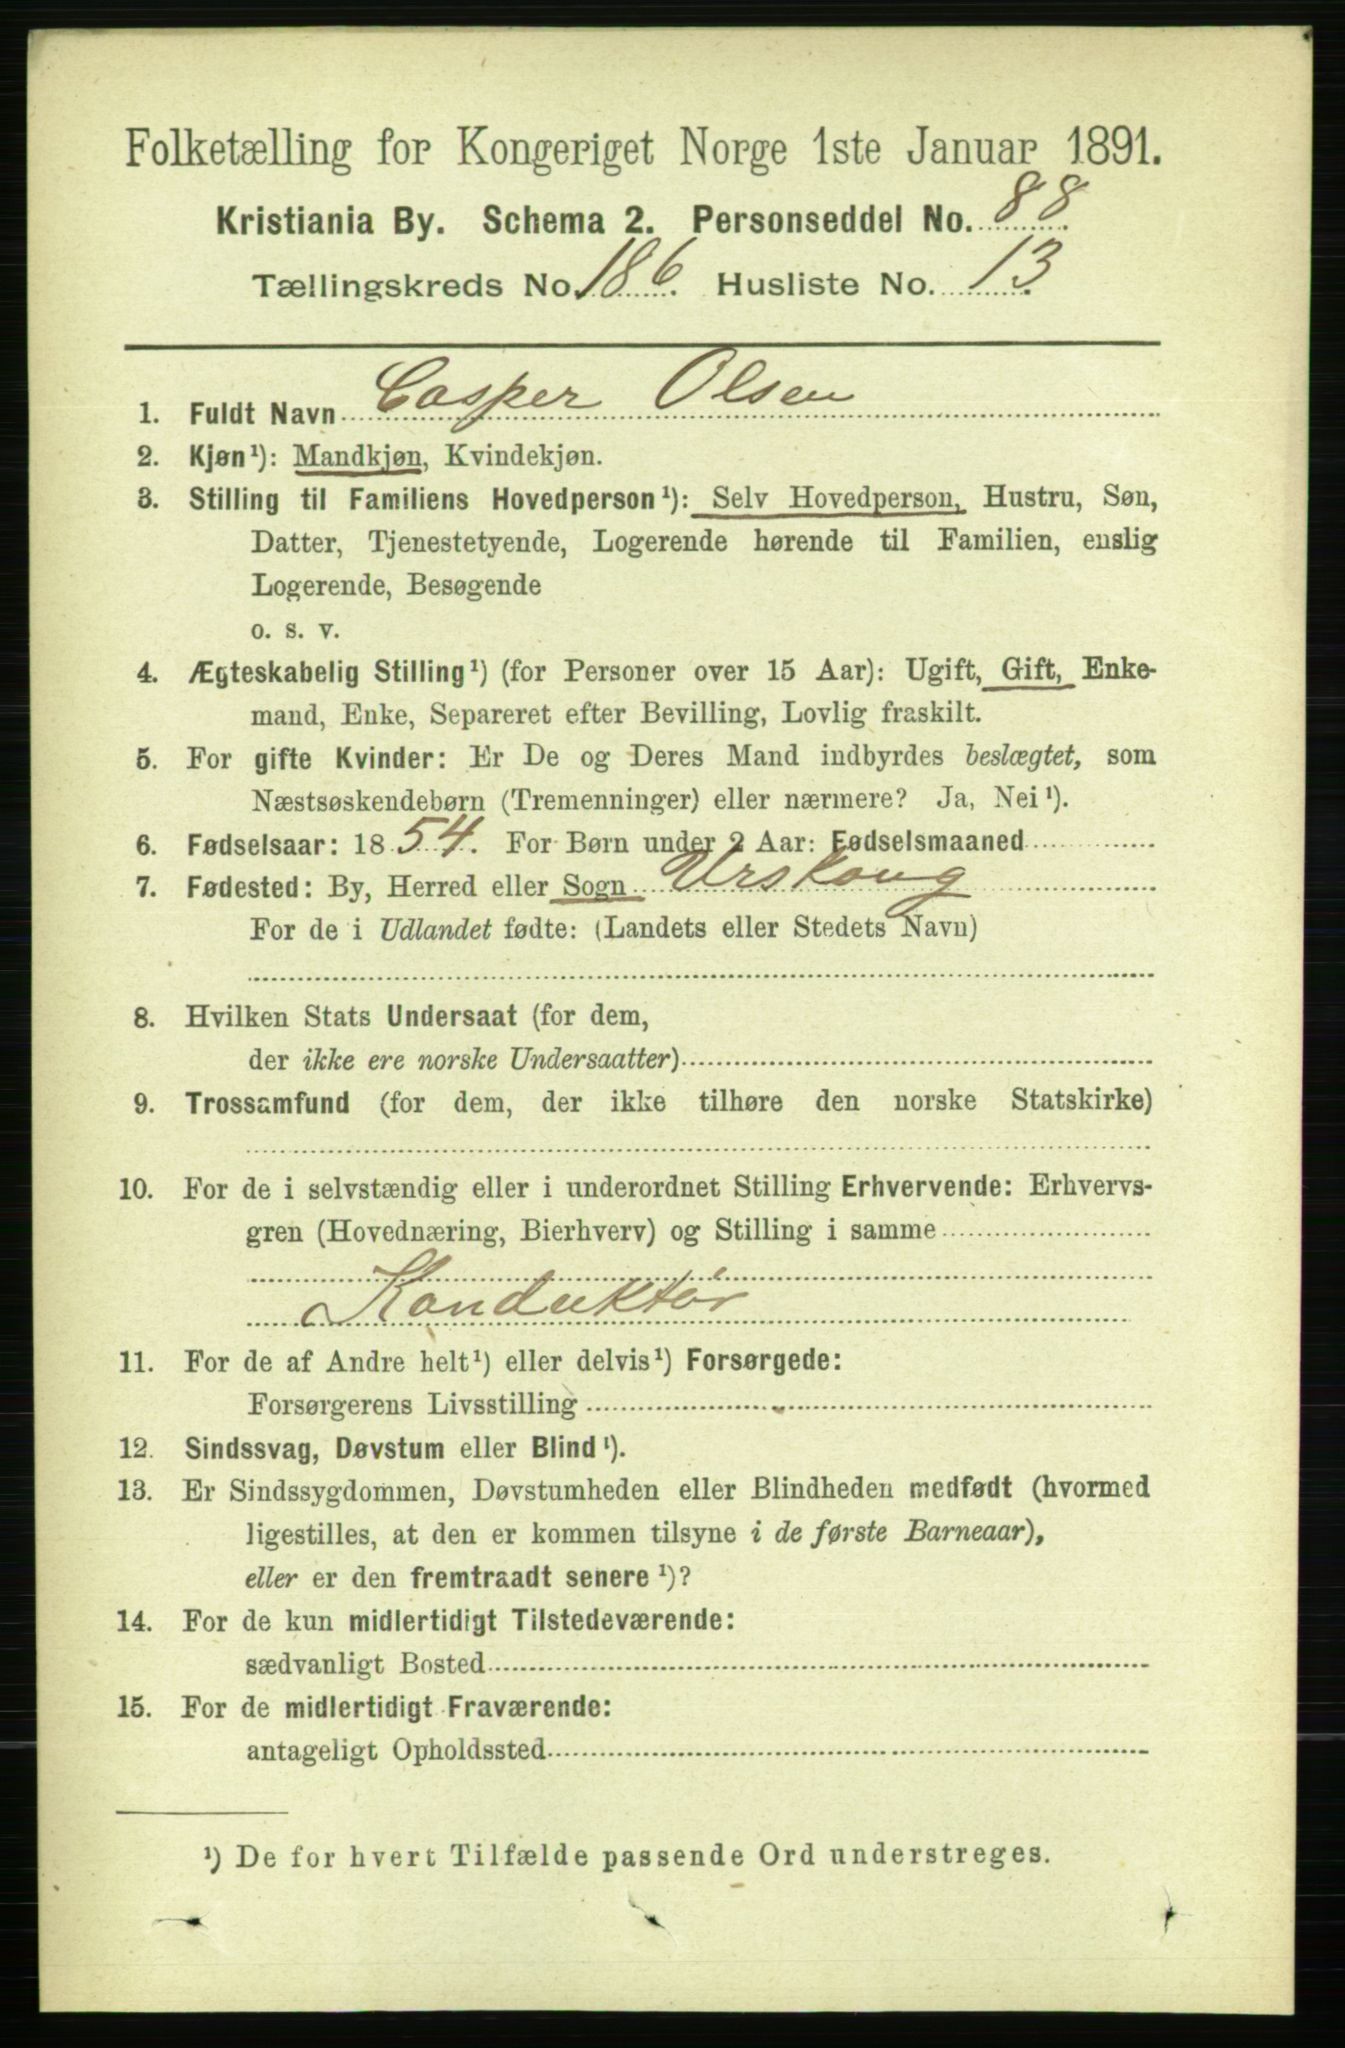 Folketælling for Kongeriget Norge 1ste Januar 1891.
Kristiania By. Schema 2. Personseddel No. 88.
Tællingskreds No. 186. Husliste No. 13.
1. Fuldt Navn Casper Olsen
2. Kjøn¹): Mandkjøn, Kvindekjøn.
3. Stilling til Familiens Hovedperson¹): Selv Hovedperson, Hustru, Søn,
Datter, Tjenestetyende, Logerende hørende til Familien, enslig
Logerende, Besøgende
o. s. v.
4. Ægteskabelig Stilling¹) (for Personer over 15 Aar): Ugift, Gift, Enke-
mand, Enke, Separeret efter Bevilling, Lovlig fraskilt.
5. For gifte Kvinder: Er De og Deres Mand indbyrdes beslægtet, som
Næstsøskendebørn (Tremenninger) eller nærmere? Ja, Nei¹).
6. Fødselsaar: 1854. For Børn under 2 Aar: Fødselsmaaned
7. Fødested: By, Herred eller Sogn Urskoug
For de i Udlandet fødte: (Landets eller Stedets Navn)
8. Hvilken Stats Undersaat (for dem,
der ikke ere norske Undersaatter)
9. Trossamfund (for dem, der ikke tilhøre den norske Statskirke)
10. For de i selvstændig eller i underordnet Stilling Erhvervende: Erhvervs-
gren (Hovednæring, Bierhverv) og Stilling i samme
Konduktør
11. For de af Andre helt¹) eller delvis¹) Forsørgede:
Forsørgerens Livsstilling
12. Sindssvag, Døvstum eller Blind¹).
13. Er Sindssygdommen, Døvstumheden eller Blindheden medfødt (hvormed
ligestilles, at den er kommen tilsyne i de første Barneaar),
eller er den fremtraadt senere¹)?
14. For de kun midlertidigt Tilstedeværende:
sædvanligt Bosted
15. For de midlertidigt Fraværende:
antageligt Opholdssted
¹) De for hvert Tilfælde passende Ord understreges.